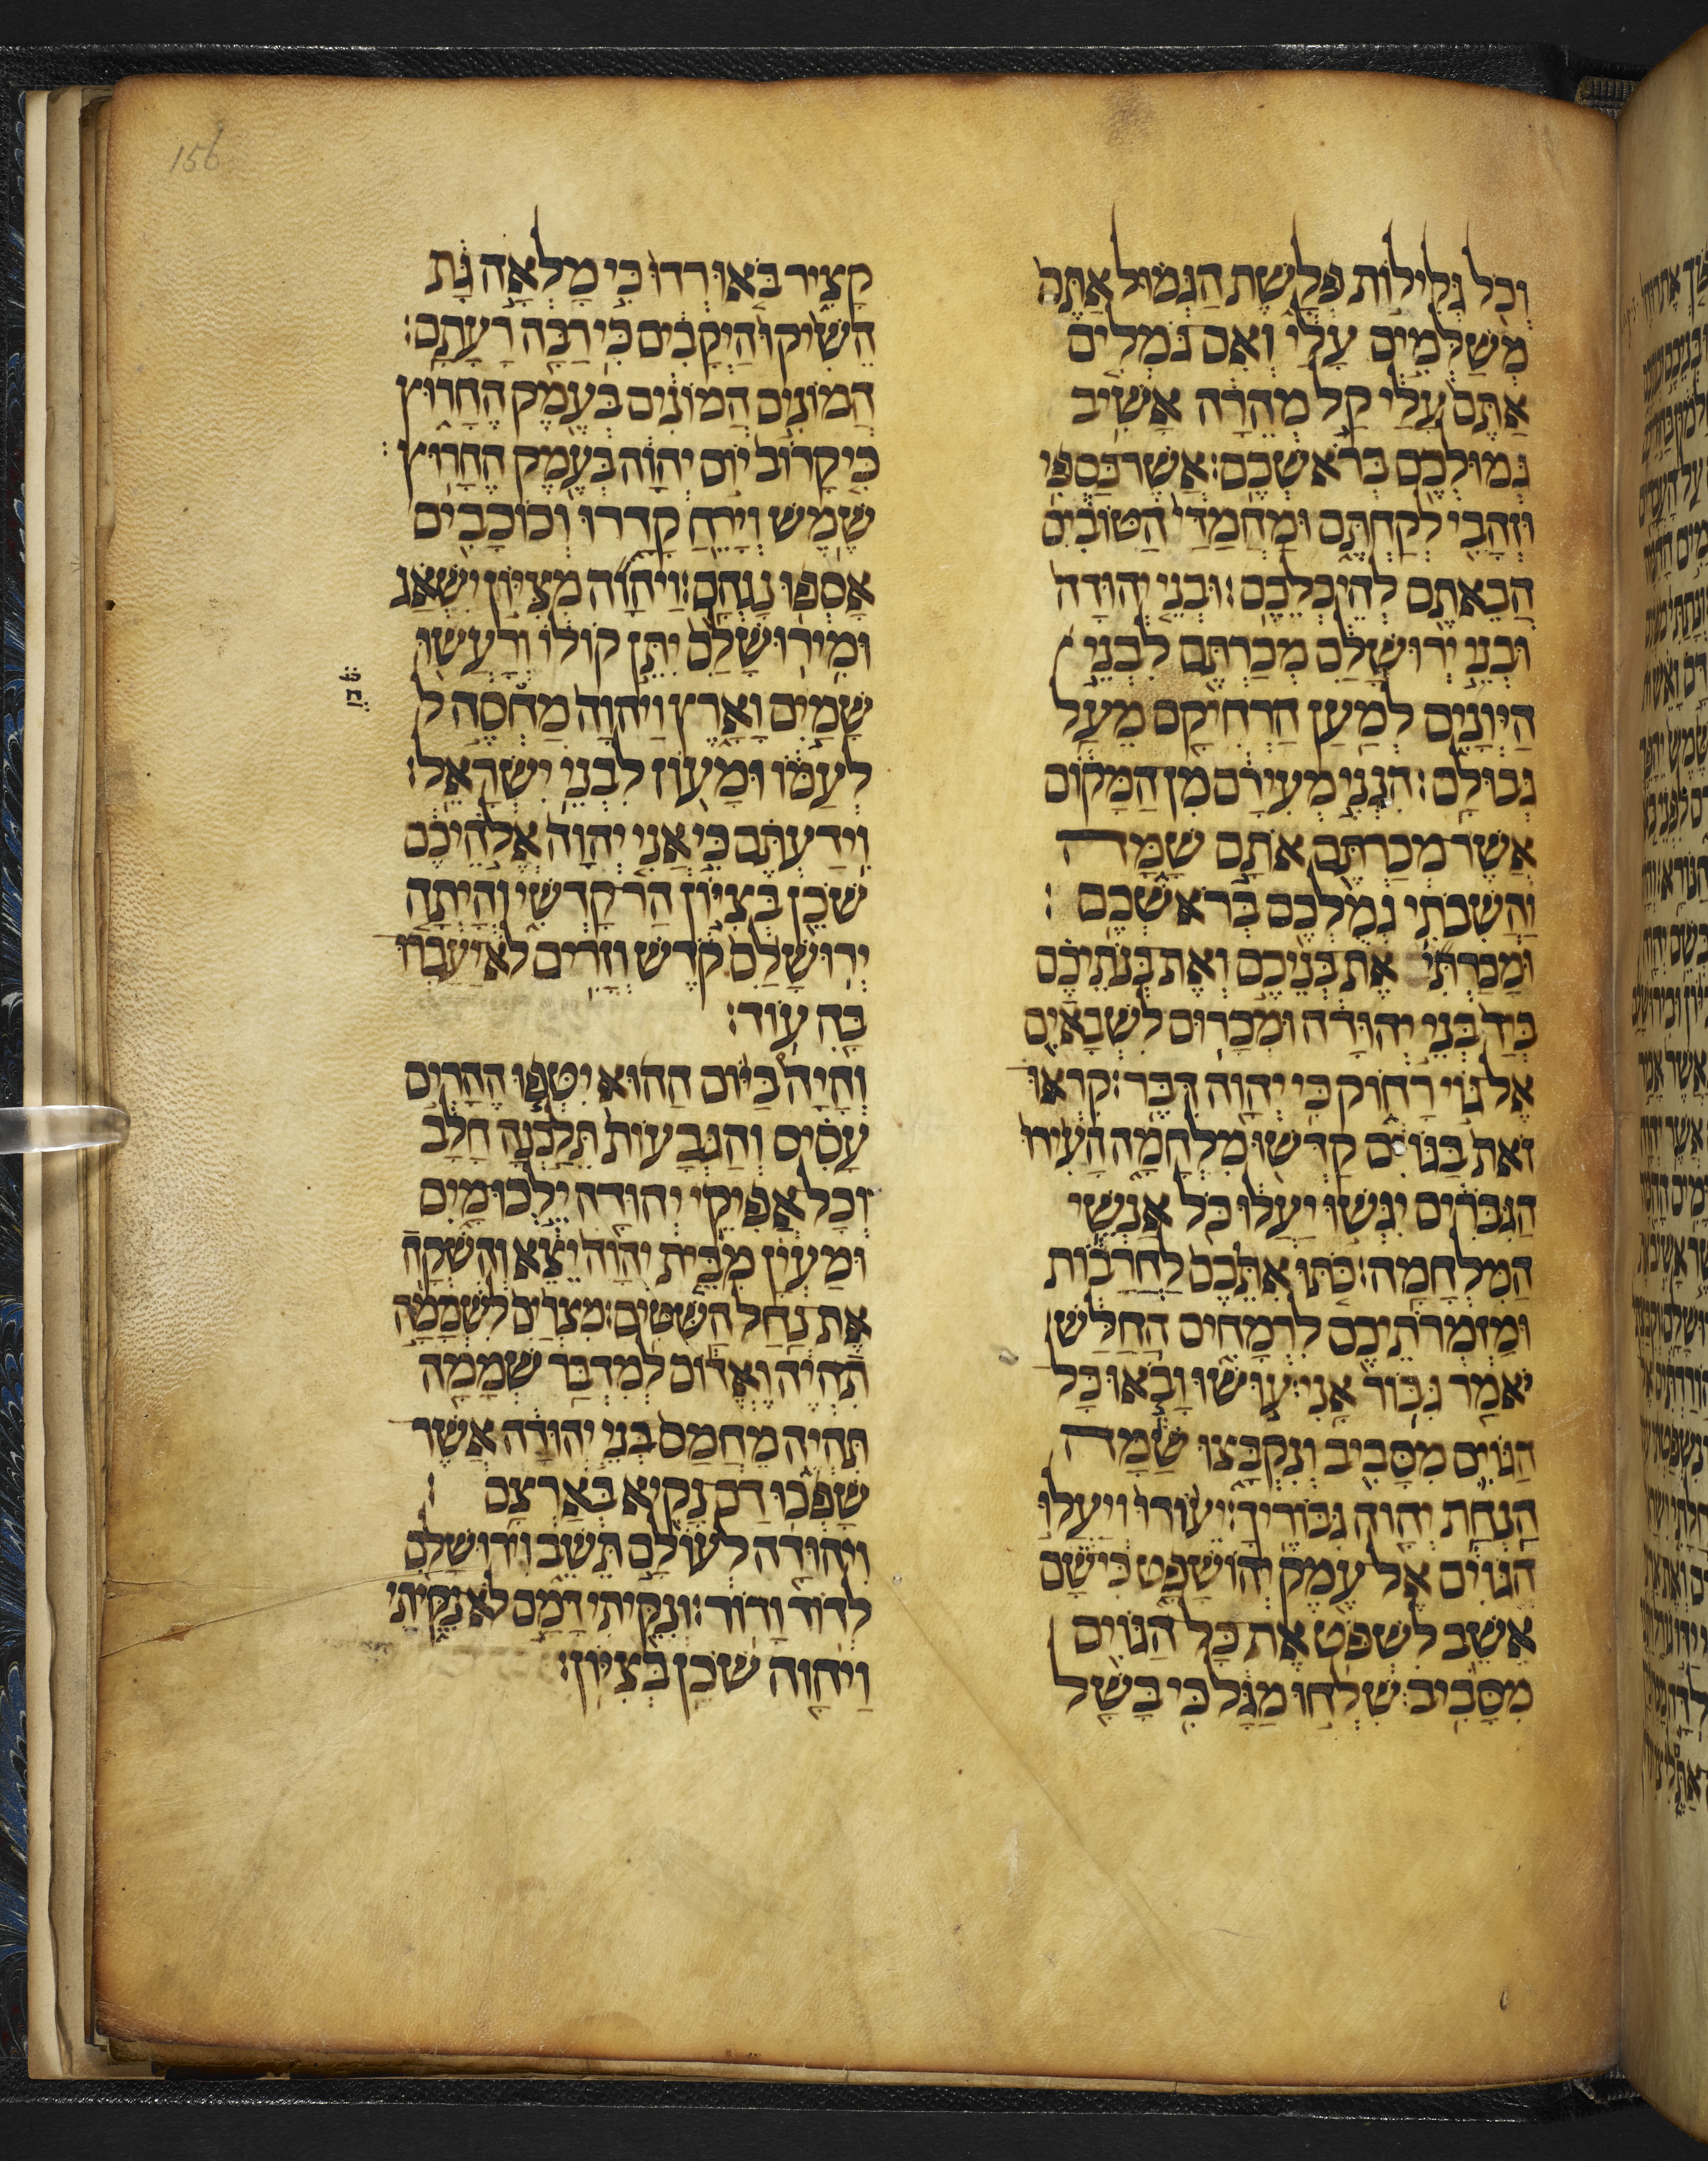 156
וְכֹל גְּלִילוֹת פְּלָשֶׁת הַגְּמוּל אַתֶּם
מְשַׁלְּמִים עָלַי וְאִם גֹּמְלִים
אַתֶּם עָלַי קַל מְהֵרָה אָשִׁיב
גְּמוּלְכֶם בְּרֹאשְׁכֶם׃ אֲשֶׁר כַּסְפִּי
וּזְהָבִי לְקַחְתֶּם וּמַחֲמַדַּי הַטּוֹבִים
הֲבֵאתֶם לְהֵיכְלֵכֶם׃ וּבְנֵי יְהוּדָה
וּבְנֵי יְרוּשָׁלִַם מְכַרְתֶּם לִבְנֵי
הַיְּוָנִים לְמַעַן הַרְחִיקָם מֵעַל
גְּבוּלָם׃ הִנְנִי מְעִירָם מִן הַמָּקוֹם
אֲשֶׁר מְכַרְתֶּם אֹתָם שָׁמָּה
וַהֲשִׁבֹתִי גְמֻלְכֶם בְּרֹאשְׁכֶם׃
וּמָכַרְתִּי אֶת בְּנֵיכֶם וְאֶת בְּנֹתֵיכֶם
בְּיַד בְּנֵי יְהוּדָה וּמְכָרוּם לִשְׁבָאיִם
אֶל גּוֹי רָחוֹק כִּי יְהוָה דִּבֵּר׃ קִרְאוּ
זֹאת בַּגּוֹיִם קַדְּשׁוּ מִלְחָמָה הָעִירוּ
הַגִּבֹּרִים יִגְּשׁוּ יַעֲלוּ כֹּל אַנְשֵׁי
הַמִּלְחָמָה׃ כֹּתּוּ אִתֵּיכֶם לַחֲרָבוֹת
וּמַזְמְרֹתֵיכֶם לִרְמָחִים הַחַלָּשׁ
יֹאמַר גִּבּוֹר אָנִי׃ עוּשׁוּ וָבֹאוּ כָל
הַגּוֹיִם מִסָּבִיב וְנִקְבָּצוּ שָׁמָּה
הַנְחַת יְהוָה גִּבּוֹרֶיךָ׃ יֵעוֹרוּ וְיַעֲלוּ
הַגּוֹיִם אֶל עֵמֶק יְהוֹשָׁפָט כִּי שָׁם
אֵשֵׁב לִשְׁפֹּט אֶת כָּל הַגּוֹיִם
מִסָּבִיב׃ שִׁלְחוּ מַגָּל כִּי בָשַׁל
קָצִיר בֹּאוּ רְדוּ כִּי מָלְאָה גַּת
הֵשִׁיקוּ הַיְקָבִים כִּי רַבָּה רָעָתָם׃
הֲמוֹנִים הֲמוֹנִים בְּעֵמֶק הֶחָרוּץ
כִּי קָרוֹב יוֹם יְהוָה בְּעֵמֶק הֶחָרוּץ׃
שֶׁמֶשׁ וְיָרֵחַ קָדָרוּ וְכוֹכָבִים
אָסְפוּ נָגְהָם׃ וַיהוָה מִצִּיּוֹן יִשְׁאָג
וּמִירוּשָׁלִַם יִתֵּן קוֹלוֹ וְרָעֲשׁוּ
שָׁמַיִם וָאָרֶץ וַיהוָה מַחֲסֶה ל
לְעַמּוֹ וּמָעוֹז לִבְנֵי יִשְׂרָאֵל׃
וִידַעְתֶּם כִּי אֲנִי יְהוָה אֱלֹהֵיכֶם
שֹׁכֵן בְּצִיּוֹן הַר קָדְשִׁי וְהָיְתָה
יְרוּשָׁלִַם קֹדֶשׁ וְזָרִים לֹא יַעַבְרוּ
בָהּ עוֹד׃
וְהָיָה בַיּוֹם הַהוּא יִטְּפוּ הֶהָרִים
עָסִיס וְהַגְּבָעוֹת תֵּלַכְנָה חָלָב
וְכָל אֲפִיקֵי יְהוּדָה יֵלְכוּ מָיִם
וּמַעְיָן מִבֵּית יְהוָה יֵצֵא וְהִשְׁקָה
אֶת נַחַל הַשִּׁטִּים׃ מִצְרַיִם לִשְׁמָמָה
תִהְיֶה וֶאֱדוֹם לְמִדְבַּר שְׁמָמָה
תִּהְיֶה מֵחֲמַס בְּנֵי יְהוּדָה אֲשֶׁר
שָׁפְכוּ דָם נָקִיא בְּאַרְצָם
וִיהוּדָה לְעוֹלָם תֵּשֵׁב וִירוּשָׁלִַם
לְדוֹר וָדוֹר׃ וְנִקֵּיתִי דָּמָם לֹא נִקֵּיתִי
וַיהוָה שֹׁכֵן בְּצִיּוֹן׃